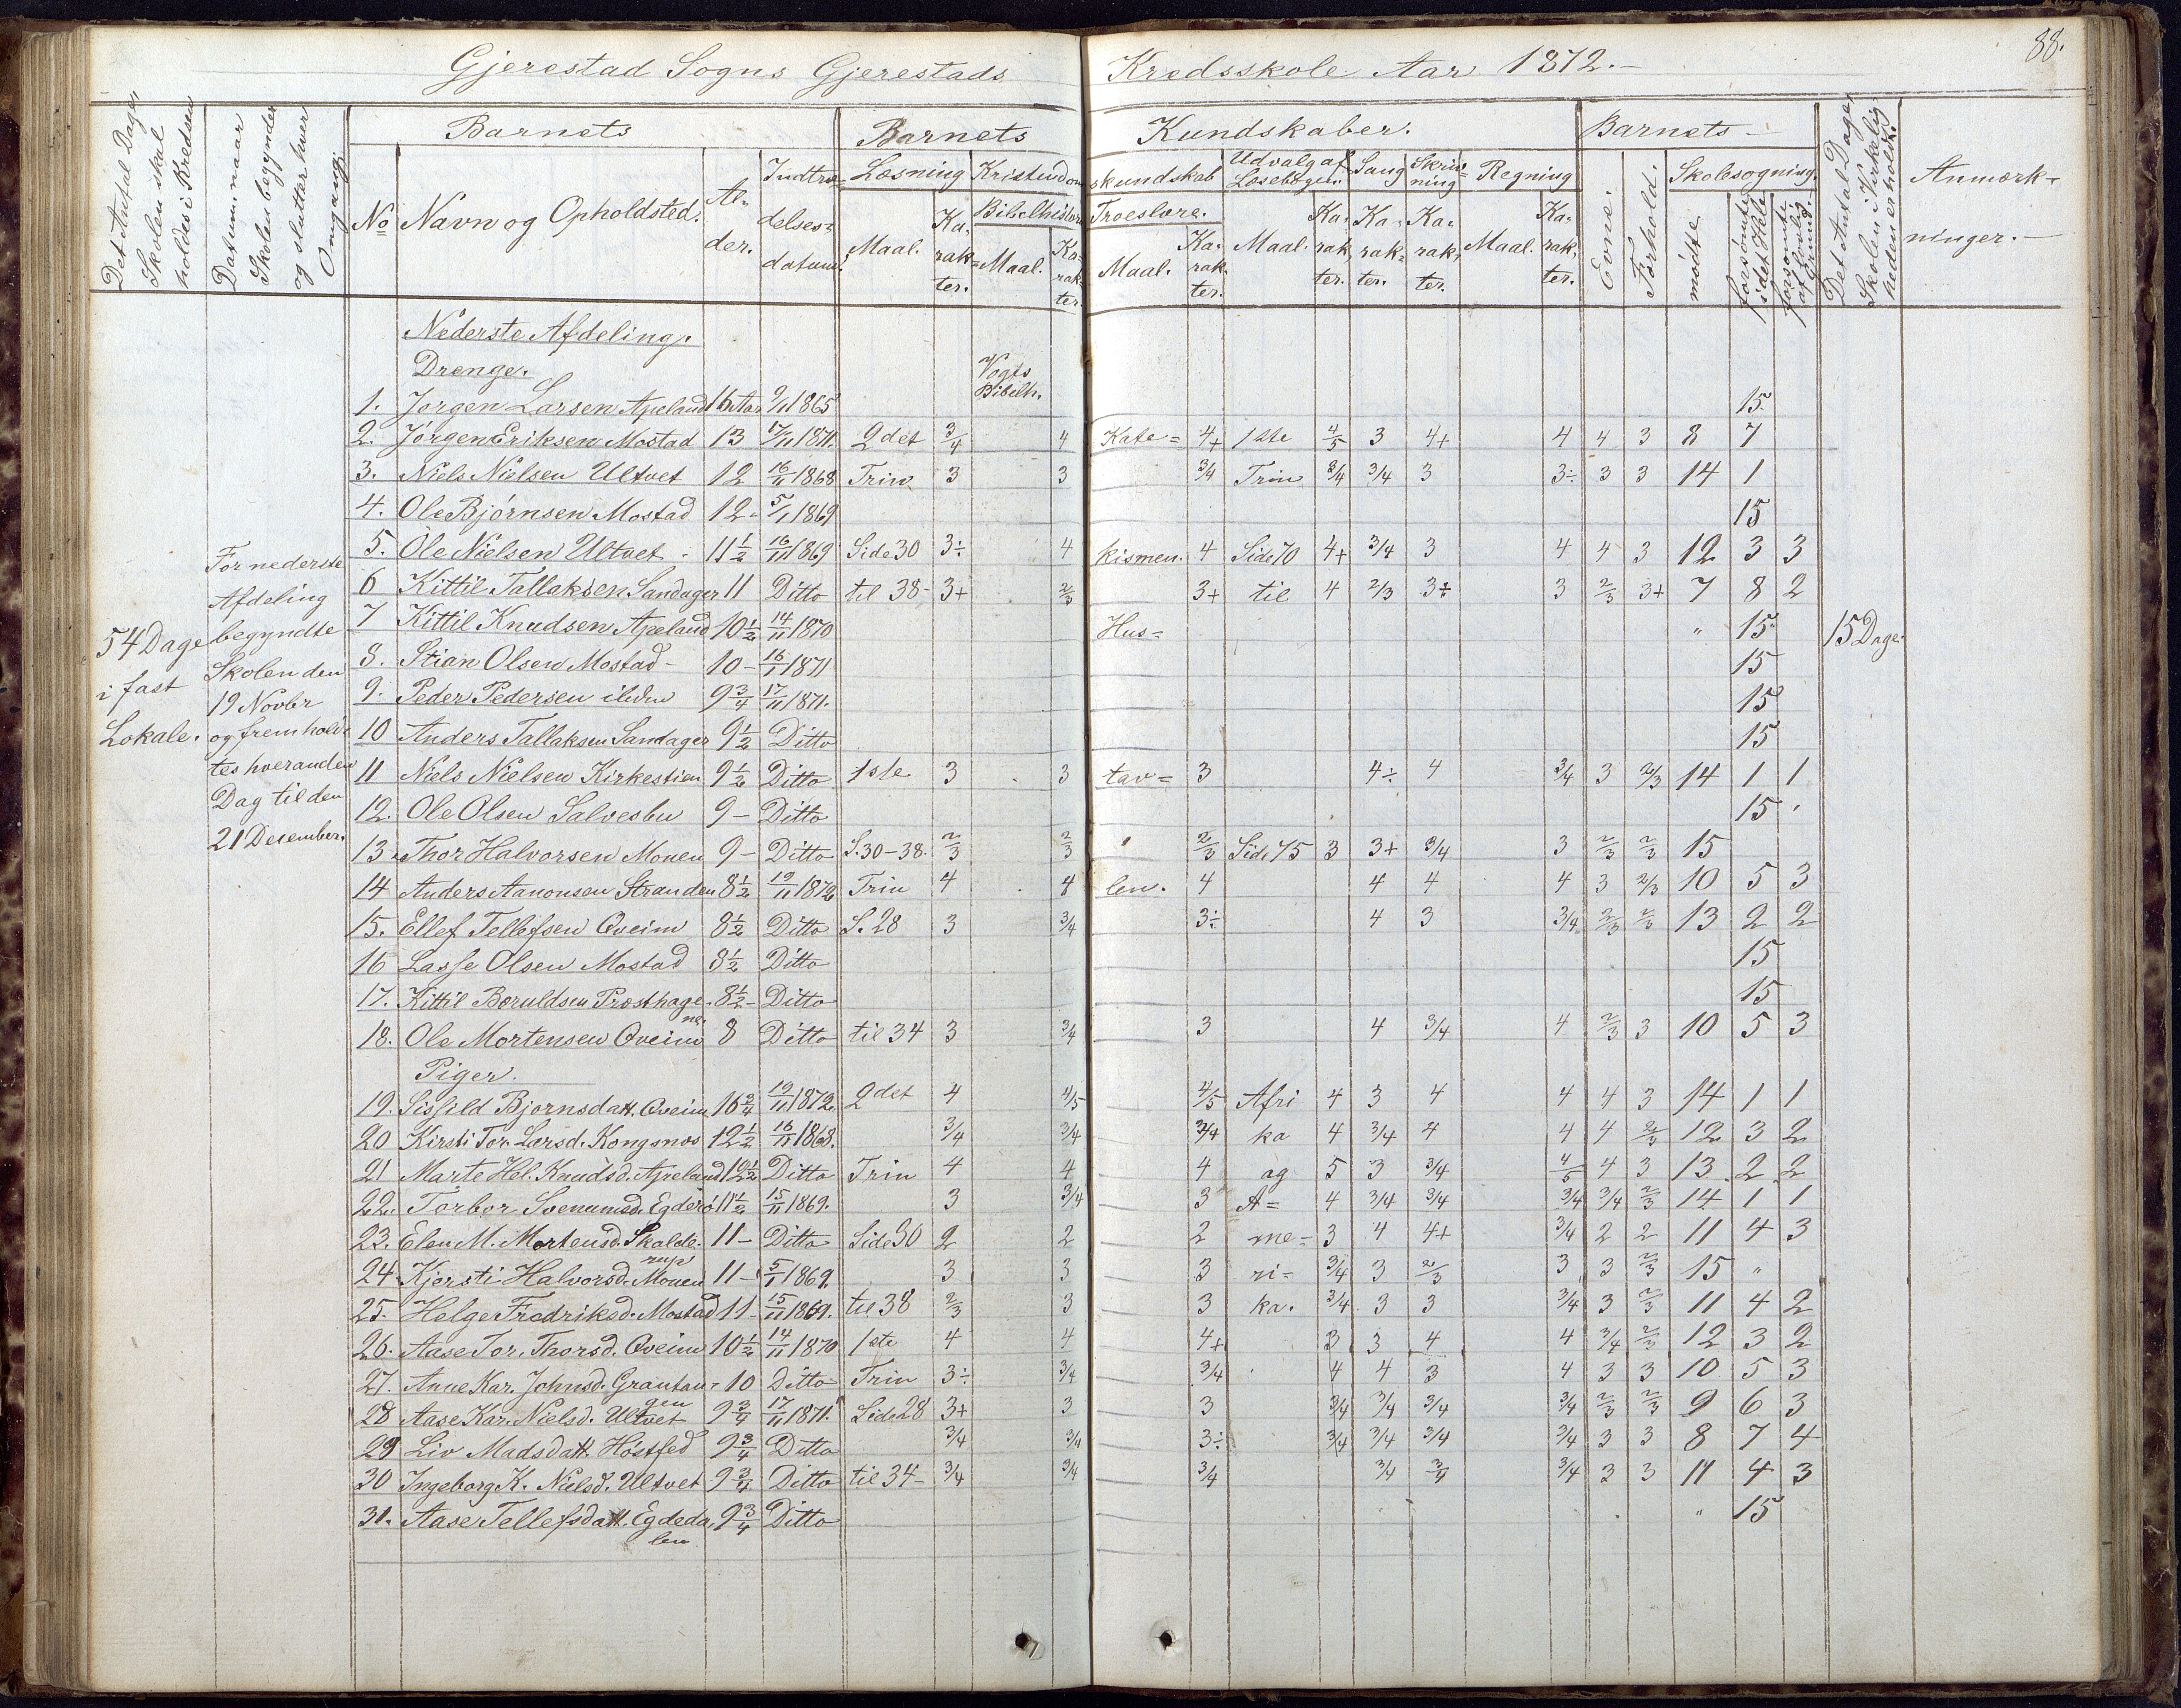 88.
Gjerestad Sogns Gjerestads Kredsskole Aar 1872.
Det Antal Dage, Skolen skal holdes i Kredsen
Datum, naar Skolen begynder og slutter hver Omgang.
Barnets
No
Navn og Opholdsted.
Al-der.
Indtræ-delses-datum.
Barnets Kundskaber.
Læsning
Maal.
Ka-rak-ter.
Kristendomskundskab
Bibelhistorie
Maal.
Ka-rak-ter.
Troeslære.
Maal.
Ka-rak-ter.
Udvalg af Læsebogen.
Maal.
Ka-rak-ter.
Sang
Ka-rak-ter.
Skriv-ning
Ka-rak-ter.
Regning
Maal.
Ka-rak-ter.
Barnets
Evne.
Forhold.
Skolesøgning
mødte
forsømte i det Hele
forsømte af lovlig Grund.
Det Antal Dage, Skolen i Virkeligheden er holdt.
Anmærk-ninger.
54 Dage
i fast
Lokale.
For nederste
Afdeling
begyndte
Skolen den
19 Novbr
og fremhold-
tes hveranden
Dag til den
21 Desember.
Nederste Afdeling.
Drenge.
Vogts
Bibelh.
1. Jørgen Larsen Apeland 16 Aar 9/11 1865 15
2. Jørgen Eriksen Mostad 13 17/11 1871. 2det 3/4 4 Kate= 4+ 1ste 4/5 3 4+ 4 4 3 8 7
3. Niels Nielsen Ultvet 12 16/11 1868 Trin 3 3 3/4 Trin 3/4 3/4 3 3÷ 3 3 14 1
4. Ole Bjørnsen Mostad 12 - 5/1 1869 15
5. Ole Nielsen Ultvet - 11 1/2 16/11 1869 Side 30 3÷ 4 kismen. 4 Side 70 4+ 3/4 3 4 4 3 12 3 3
6 Kittil Tallaksen Sandager 11 Ditto til 38- 3+ 2/3 3+ til 4 2/3 3÷ 3 2/3 3+ 7 8 2
7 Kittil Knudsen Apeland 10 1/2 14/11 1870 Hus= " 15 15 Dage.
8. Stian Olsen Mostad - 10 - 16/1 1871 15
9. Peder Pedersen ibidem 9 3/4 17/11 1871. 15
10 Anders Tallaksen Sandager 9 1/2 Ditto 15
11 Niels Nielsen Kirkestien 9 1/2 Ditto 1ste 3 3 tav= 3 4÷ 4 3/4 3 2/3 14 1 1
12. Ole Olsen Salvesbu 9 - Ditto 15
13 Thor Halvorsen Monen 9 - Ditto S. 30-38. 2/3 2/3 2/3 Side 75 3 3+ 3/4 3 2/3 2/3 15
14 Anders Aanonsen Stranden 8 1/2 19/11 1872 Trin 4 4 len. 4 4 4 4 3 2/3 10 5 3
15. Ellef Tellefsen Qveim 8 1/2 Ditto S. 28 3 3/4 3÷ 4 3 3/4 2/3 2/3 13 2 2
16 Lasse Olsen Mostad 8 1/2 Ditto 15
17. Kittil Beruldsen Præsthage-ne. 8 1/2 - Ditto 15
18. Ole Mortensen Qveim 8 Ditto til 34 3 3/4 3 4 3/4 4 2/3 3 10 5 3
Piger.
19. Sissild Bjørnsdatt. Qveim 16 3/4 19/11 1872. 2det 4 4/5 4/5 Afri 4 3 4 4 4 3 14 1 1
20 Kirsti Tor. Larsd. Kongsnæs 12 1/2 16/11 1868. 3/4 3/4 3/4 ka 4 3/4 4 4 4 2/3 12 3 2
21 Marte Hel. Knudsd. Apeland 12 1/2 Ditto Trin 4 4 4 og 5 3 3/4 4/5 4 3 13 2 2
22. Torbor Svenumsd. Egderø 11 1/2 15/11 1869. 3 3/4 3 A= 4 3/4 3/4 3/4 3/4 2/3 14 1 1
23. Elen M. Mortensd. Skalde-rup 11 - Ditto Side 30 2 2 2 me= 3 4 4+ 3/4 2 2 11 4 3
24 Kjersti Halvorsd. Monen 11 - 5/1 1869. 3 3 3 ri= 3/4 3 2/3 3 3 2/3 15 "
25. Helge Fredriksd. Mostad 11 - 15/11 1869. til 38 2/3 3 3 ka. 3/4 3 3 3/4 3 2/3 11 4 2
26. Aase Tor. Thorsd. Qveim 10 1/2 14/11 1870 1ste 4 4 4+ 3 3 4 4 3/4 2/3 12 3 2
27. Anne Kar. Johnsd. Grautau-gen 10 Ditto Trin 3÷ 3/4 3/4 4 4 3 4 3 3 10 5 3
28 Aase Kar. Nielsd. Ultvet 9 3/4 17/11 1871. Side 28 3+ 3 3 3/4 3/4 3/4 3/4 2/3 2/3 9 6 3
29 Liv Madsdatt. Høstfed 9 3/4 Ditto 3/4 3/4 3÷ 3/4 3/4 3/4 3/4 3 3 8 7 4
30 Ingeborg K. Nielsd. Ultvet 9 3/4 Ditto til 34- 3/4 3/4 3/4 3/4 3/4 3/4 3 3 11 4 3
31. Aase Tellefsdatt. Egdeda-len 9 3/4 Ditto " 15